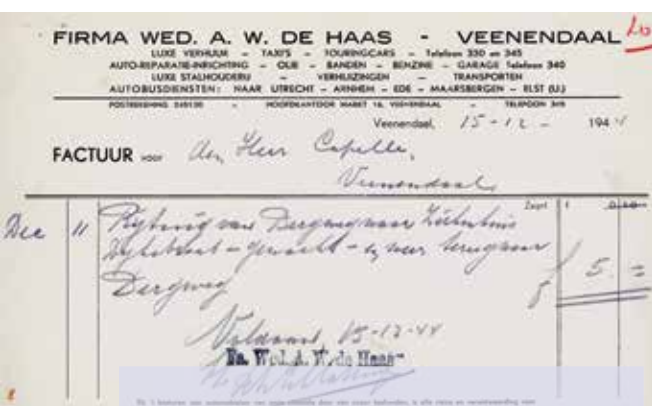 Lo
FIRMA WED. A. W. DE HAAS - VEENENDAAL
LUXE VERHUUR - TAXI'S - TOURINGCARS - Telefoon 330 en 345
AUTO-REPARATIE-INRICHTING - OLIE - BANDEN - BENZINE - GARAGE Telefoon 340
LUXE STALHOUDERIJ - VERHUIZINGEN - TRANSPORTEN
AUTOBUSDIENSTEN: NAAR UTRECHT - ARNHEM - EDE - MAARSBERGEN - ELST (U.)
POSTREKENING - HOOFDKANTOOR MARKT 16, VEENENDAAL - TELEFOON 345
Veenendaal, 15-12- 1944
FACTUUR voor den Heer Capelle,
Veenendaal
Dec 11 Rijtuig van Bergweg naar Ziekenhuis
- gewacht - en weer terug naar
Bergweg f 5.=
Voldaan, 15-12-44
Fa. Wed. A. W. de Haas